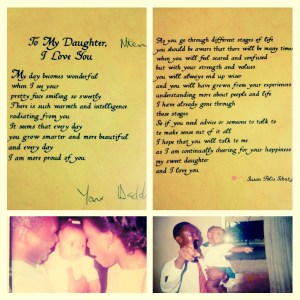 To My Daughter,
I Love You
My day becomes wonderful
when I see your
pretty face smiling so sweetly
There is such warmth and intelligence
radiating from you
It seems that every day
you grow smarter and more beautiful
and every day
I am more proud of you
Your Daddy
As you go through different stages of life
you should be aware that there will be many times
when you will feel scared and confused
but with your strength and values
you will always end up wiser
and you will have grown from your experiences
understanding more about people and life
I have already gone through
these stages
So if you need advice or someone to talk to
to make sense out of it all
I hope that you will talk to me
as I am continually cheering for your happiness
my sweet daughter
and I love you
Susan Polis Schutz